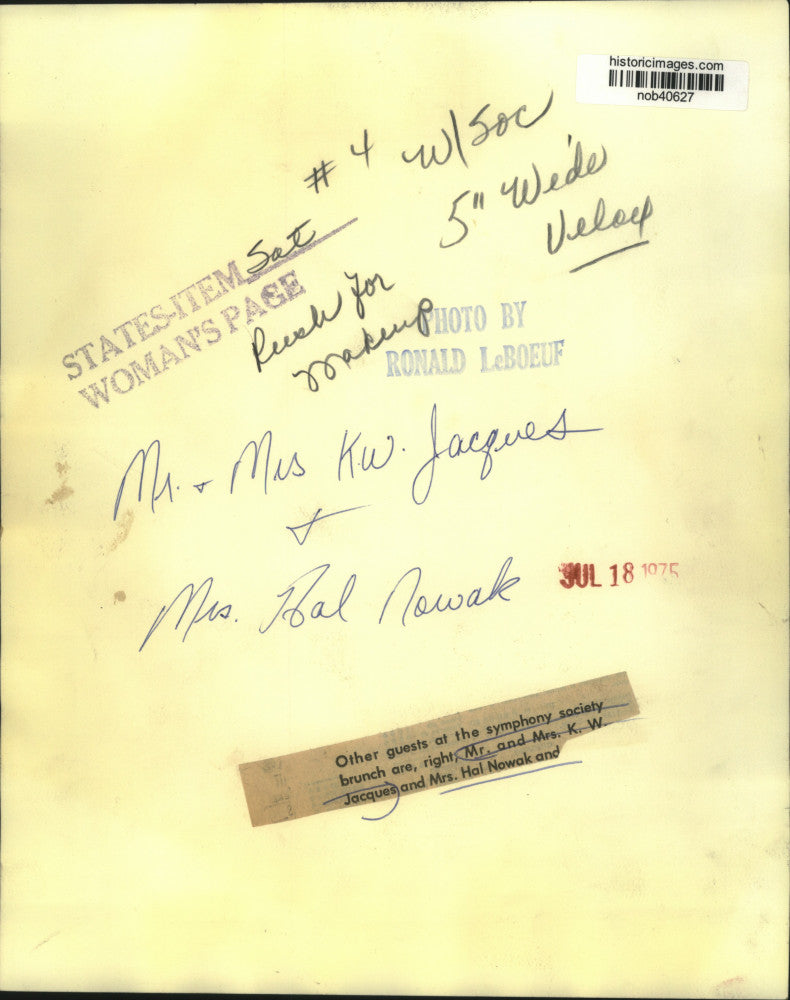 historicimages.com
nob40627
# 4 w/Soc
5" Wide
Velox
Sat
STATES-ITEM
WOMAN'S PAGE
Rush for
makeup
PHOTO BY
RONALD LeBOEUF
Mr. + Mrs K.W. Jacques
+
Mrs. Hal Nowak
JUL 18 1975
Other guests at the symphony society
brunch are, right, Mr. and Mrs. K. W.
Jacques and Mrs. Hal Nowak and